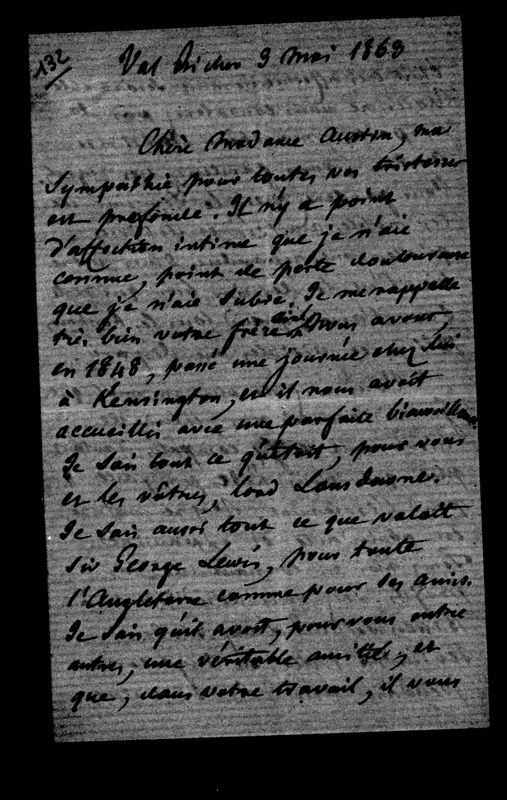 132
Val Richer 3 mai 1863
Chère Madame Austin, ma
sympathie pour toutes vos tristesses
est profonde. Il n'y a point
d'affection intime que je n'aie
connue, point de perte douloureuse
que je n'aie subie. Je me rappelle
très bien votre frère. Nous avons,
en 1848, passé une journée chez lui
à Kensington, où il nous avait
accueillis avec une parfaite bienveillance.
Je sais tout ce qu'était, pour vous
et les vôtres, lord Lansdowne.
Je sais aussi tout ce que valait
sir George Lewis, pour toute
l'Angleterre comme pour ses amis.
Je sais qu'il avait, pour vous entre
autres, une véritable amitié, et
que, dans votre travail, il vous